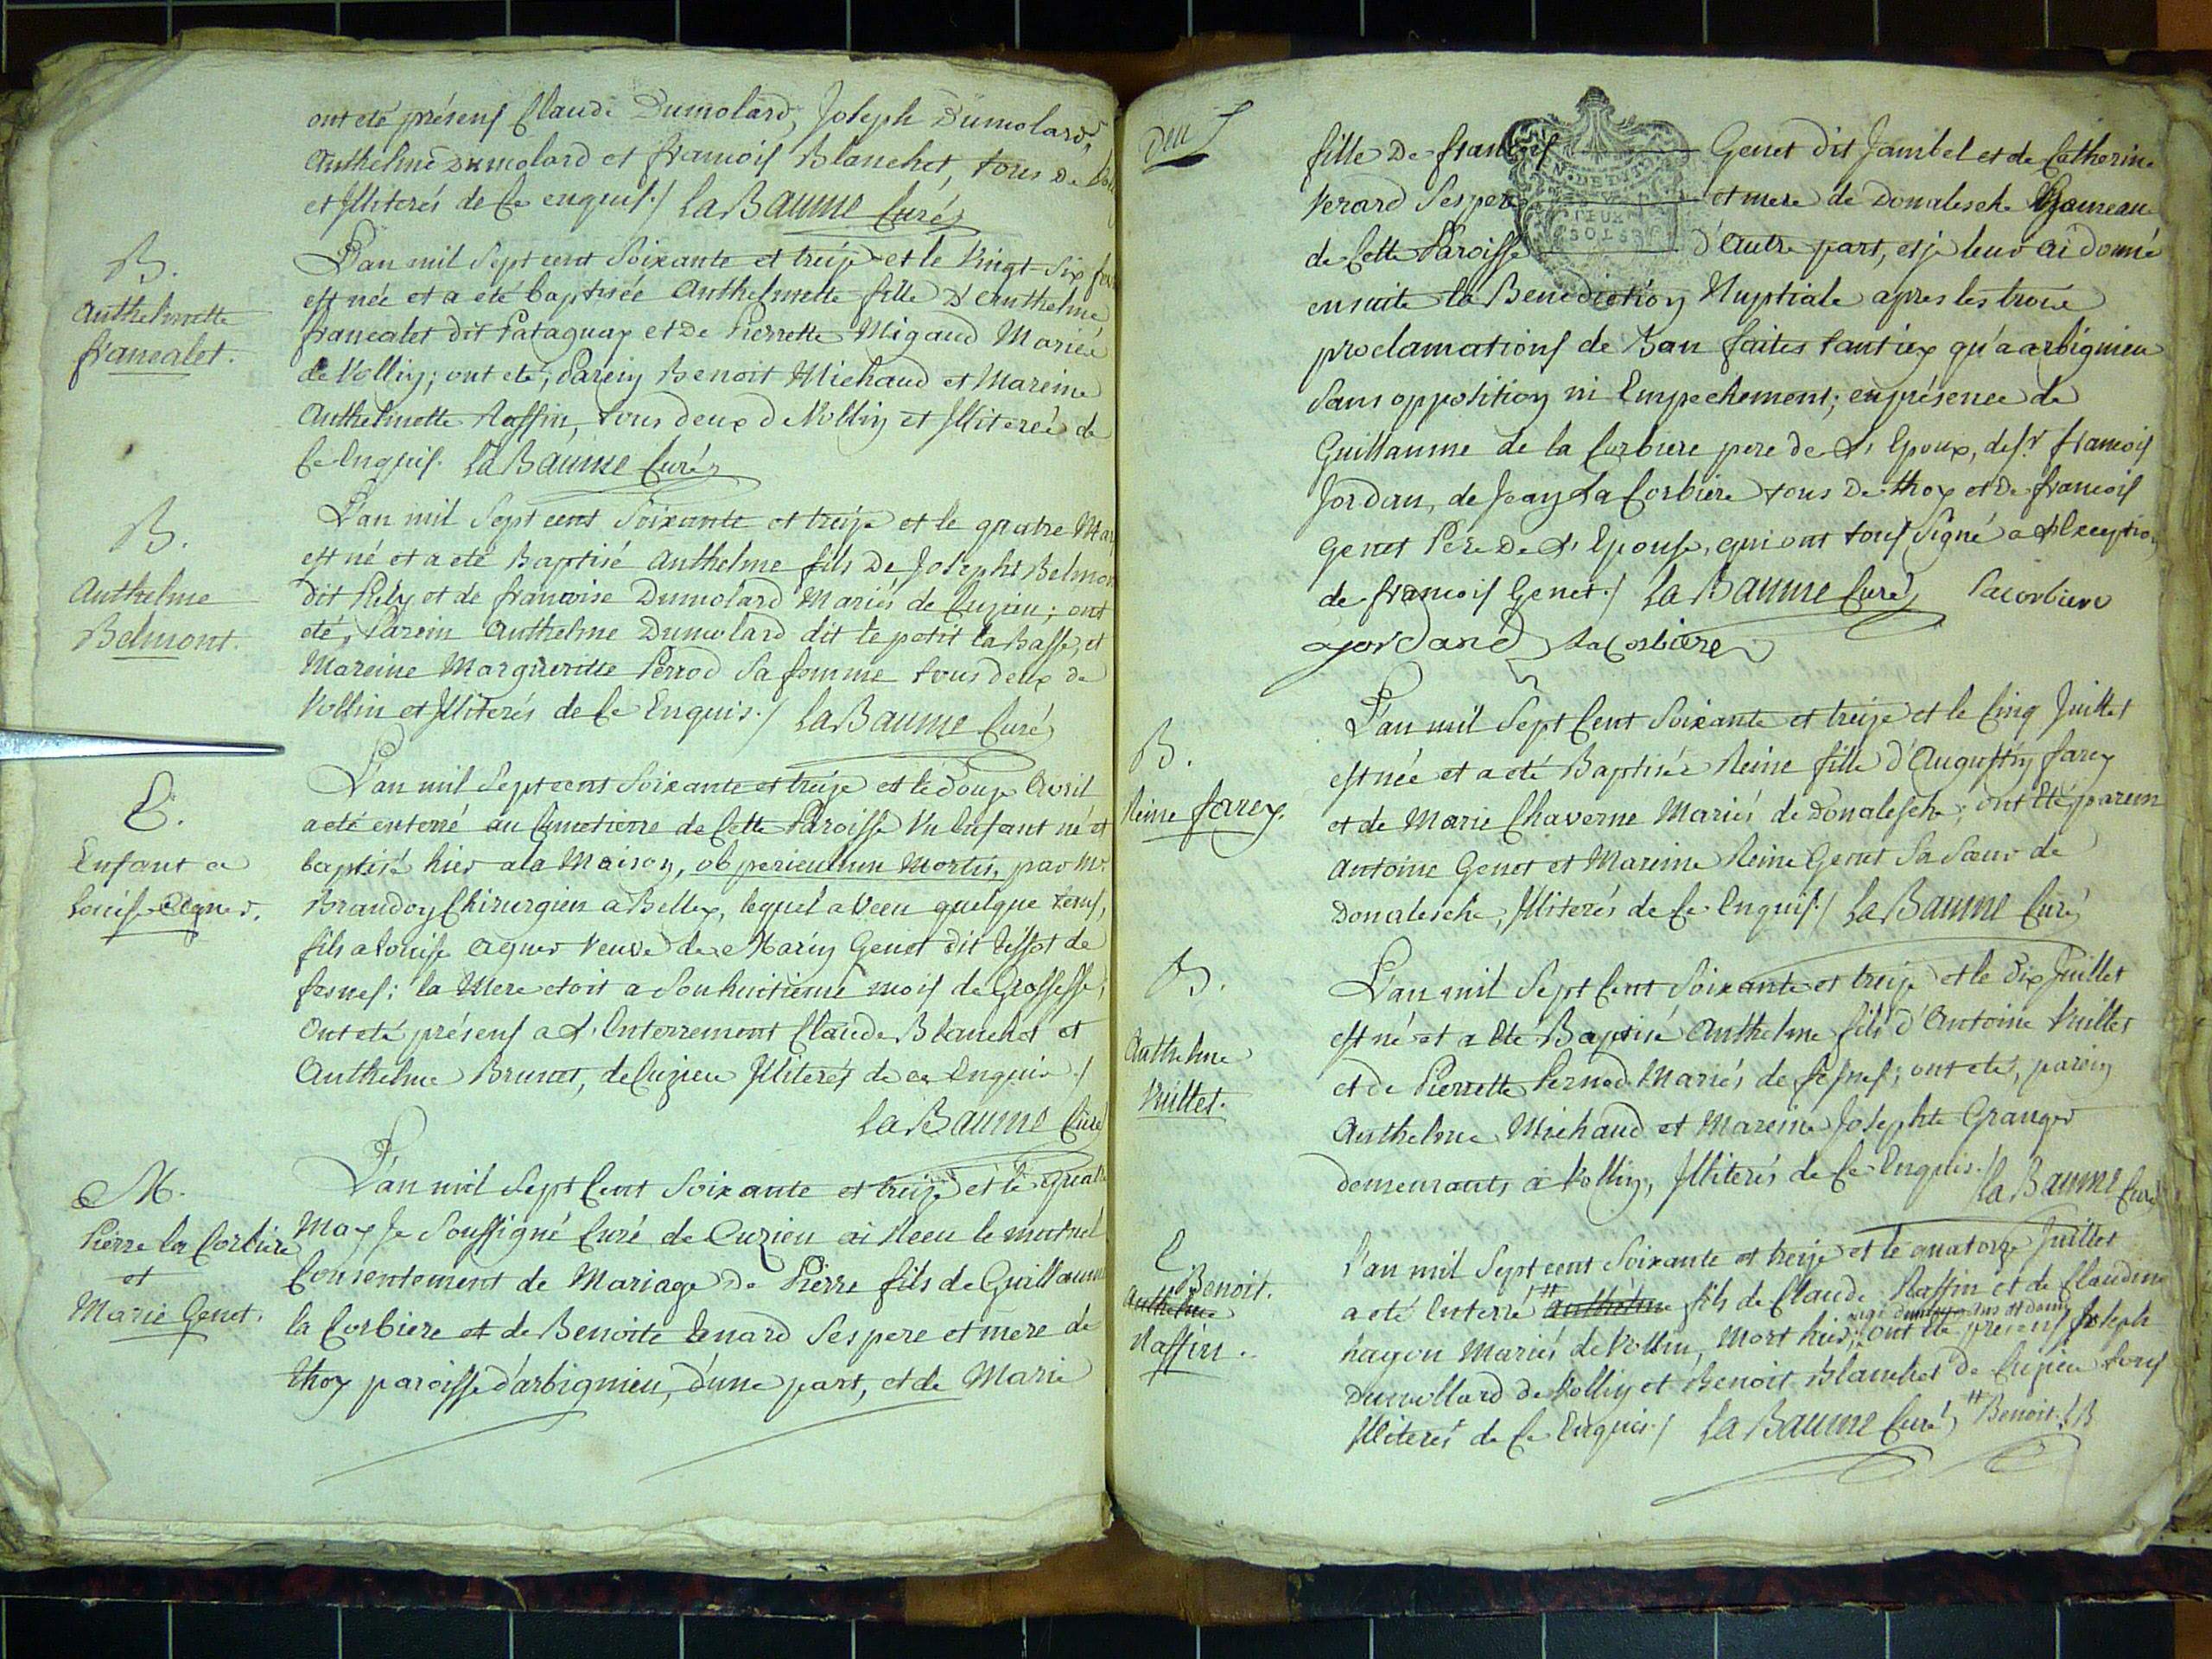 ont eté présens Claude Dumolard, Joseph Dumolard,
Anthelme Dumolard et francois Blanchet, tous De
et Illiterés de ce enquis./ La Baume Curé
B.
Anthelmette
francalet.
L'an mil Sept cent Soixante et treize et le Vingt Six
est née et a eté baptisée Anthelmette fille d'Anthelme
francalet dit Pataquay et de Pierrette Migaud Mariés
de Vollin; ont eté, Parein Benoit Michaud et Mareine
Anthelmette Raffin, tous deux de Vollin et Illiterés de
Ce Enquis. La Baume Curé
B.
Anthelme
Belmont.
L'an mil Sept cent Soixante et treize et le quatre
est né et a eté Baptisé Anthelme fils de Josepht Belmont
dit et de francoise Dumolard Mariés de Cuzieu; ont
eté, Parein Anthelme Dumolard dit le petit la Basse, et
Mareine Margueritte Perrod Sa femme tous deux de
Vollin et Illiterés de Ce Enquis./ La Baume Curé
E.
Enfant a
Louise Aguer.
L'an mil Sept cent Soixante et treize et le Douze Avril
a eté enterré au Cimetierre de Cette Paroisse Un Enfant né et
baptisé hier a la Maison, ob periculum Mortis, par Mr.
Brandoy Chirurgien a Belley, lequel a Vecu quelque tems,
fils a Louise Aguer Veuve de Marin Genet dit Tissot de
fesnes; la Mere etoit a Son huitieme mois de Grossesse;
Ont eté présens a L'Enterrement Claude Blanchet et
Anthelme Brunet, de Cuzieu Illiterés de ce Enquis./
La Baume Curé
M.
Pierre la Corbiere
et
Marie Genet.
L'an mil Sept Cent Soixante et treize et le quatre
May Je Soussigné Curé de Cuzieu ai Recu le mutuel
Consentement de Mariage de Pierre fils de Guillaume
la Corbiere et de Benoite Ses pere et mere de
thoy paroisse d'arbignieu, d'une part, et de Marie
fille De francois Genet dit Jambel et de Catherine
Verard Ses pere et mere de Donalesche
de Cette Paroisse d'Autre part, et je leur ai donné
ensuite la Benediction Nuptiale apres les trois
proclamations de Ban faites tant icy qu'a arbignieu
Sans opposition ni Empechement; en présence de
Guillaume de la Corbiere pere de L'Epoux, de Sr. francois
Jordan, de Jean La Corbiere tous De thoy et De francois
Genet Pere De L'Epouse, qui ont tous Signé a L'Exception
de francois Genet./ La Baume Curé Lacorbiere
jordand La Corbiere
B.
Reine farcy.
L'an mil Sept Cent Soixante et treize et le Cinq Juillet
est née et a eté Baptisée Reine fille d'Augustin farcy
et de Marie Chaverne Mariés de Donalesche; ont Eté, parein
Antoine Genet et Mareine Reine Genet Sa Sœur de
Donalesche, Illiterés de Ce Enquis./ La Baume Curé
B.
Anthelme
Vuillet.
L'an mil Sept Cent Soixante et treize et le Dix Juillet
est né et a Eté Baptisé Anthelme fils d'Antoine Vuillet
et de Pierrette Pernod Mariés de fesnes; ont eté, parein
Anthelme Michaud et Mareine Josephte Granger
demeurants à Vollin, Illiterés de Ce Enquis./ La Baume Curé
E
Benoit.
Anthelme
Raffin.
L'an mil Sept cent Soixante et treize et le quatorze Juillet
a eté Enterré # Anthelme fils de Claude Raffin et de Claudine
hagon Mariés de Vollin, Mort hier; agé d'un ans et demi ont eté presens Joseph
Dumollard de Vollin et Benoit Blanchet de Cuzieu tous
Illiterés de Ce Enquis./ La Baume Curé # Benoit. LB